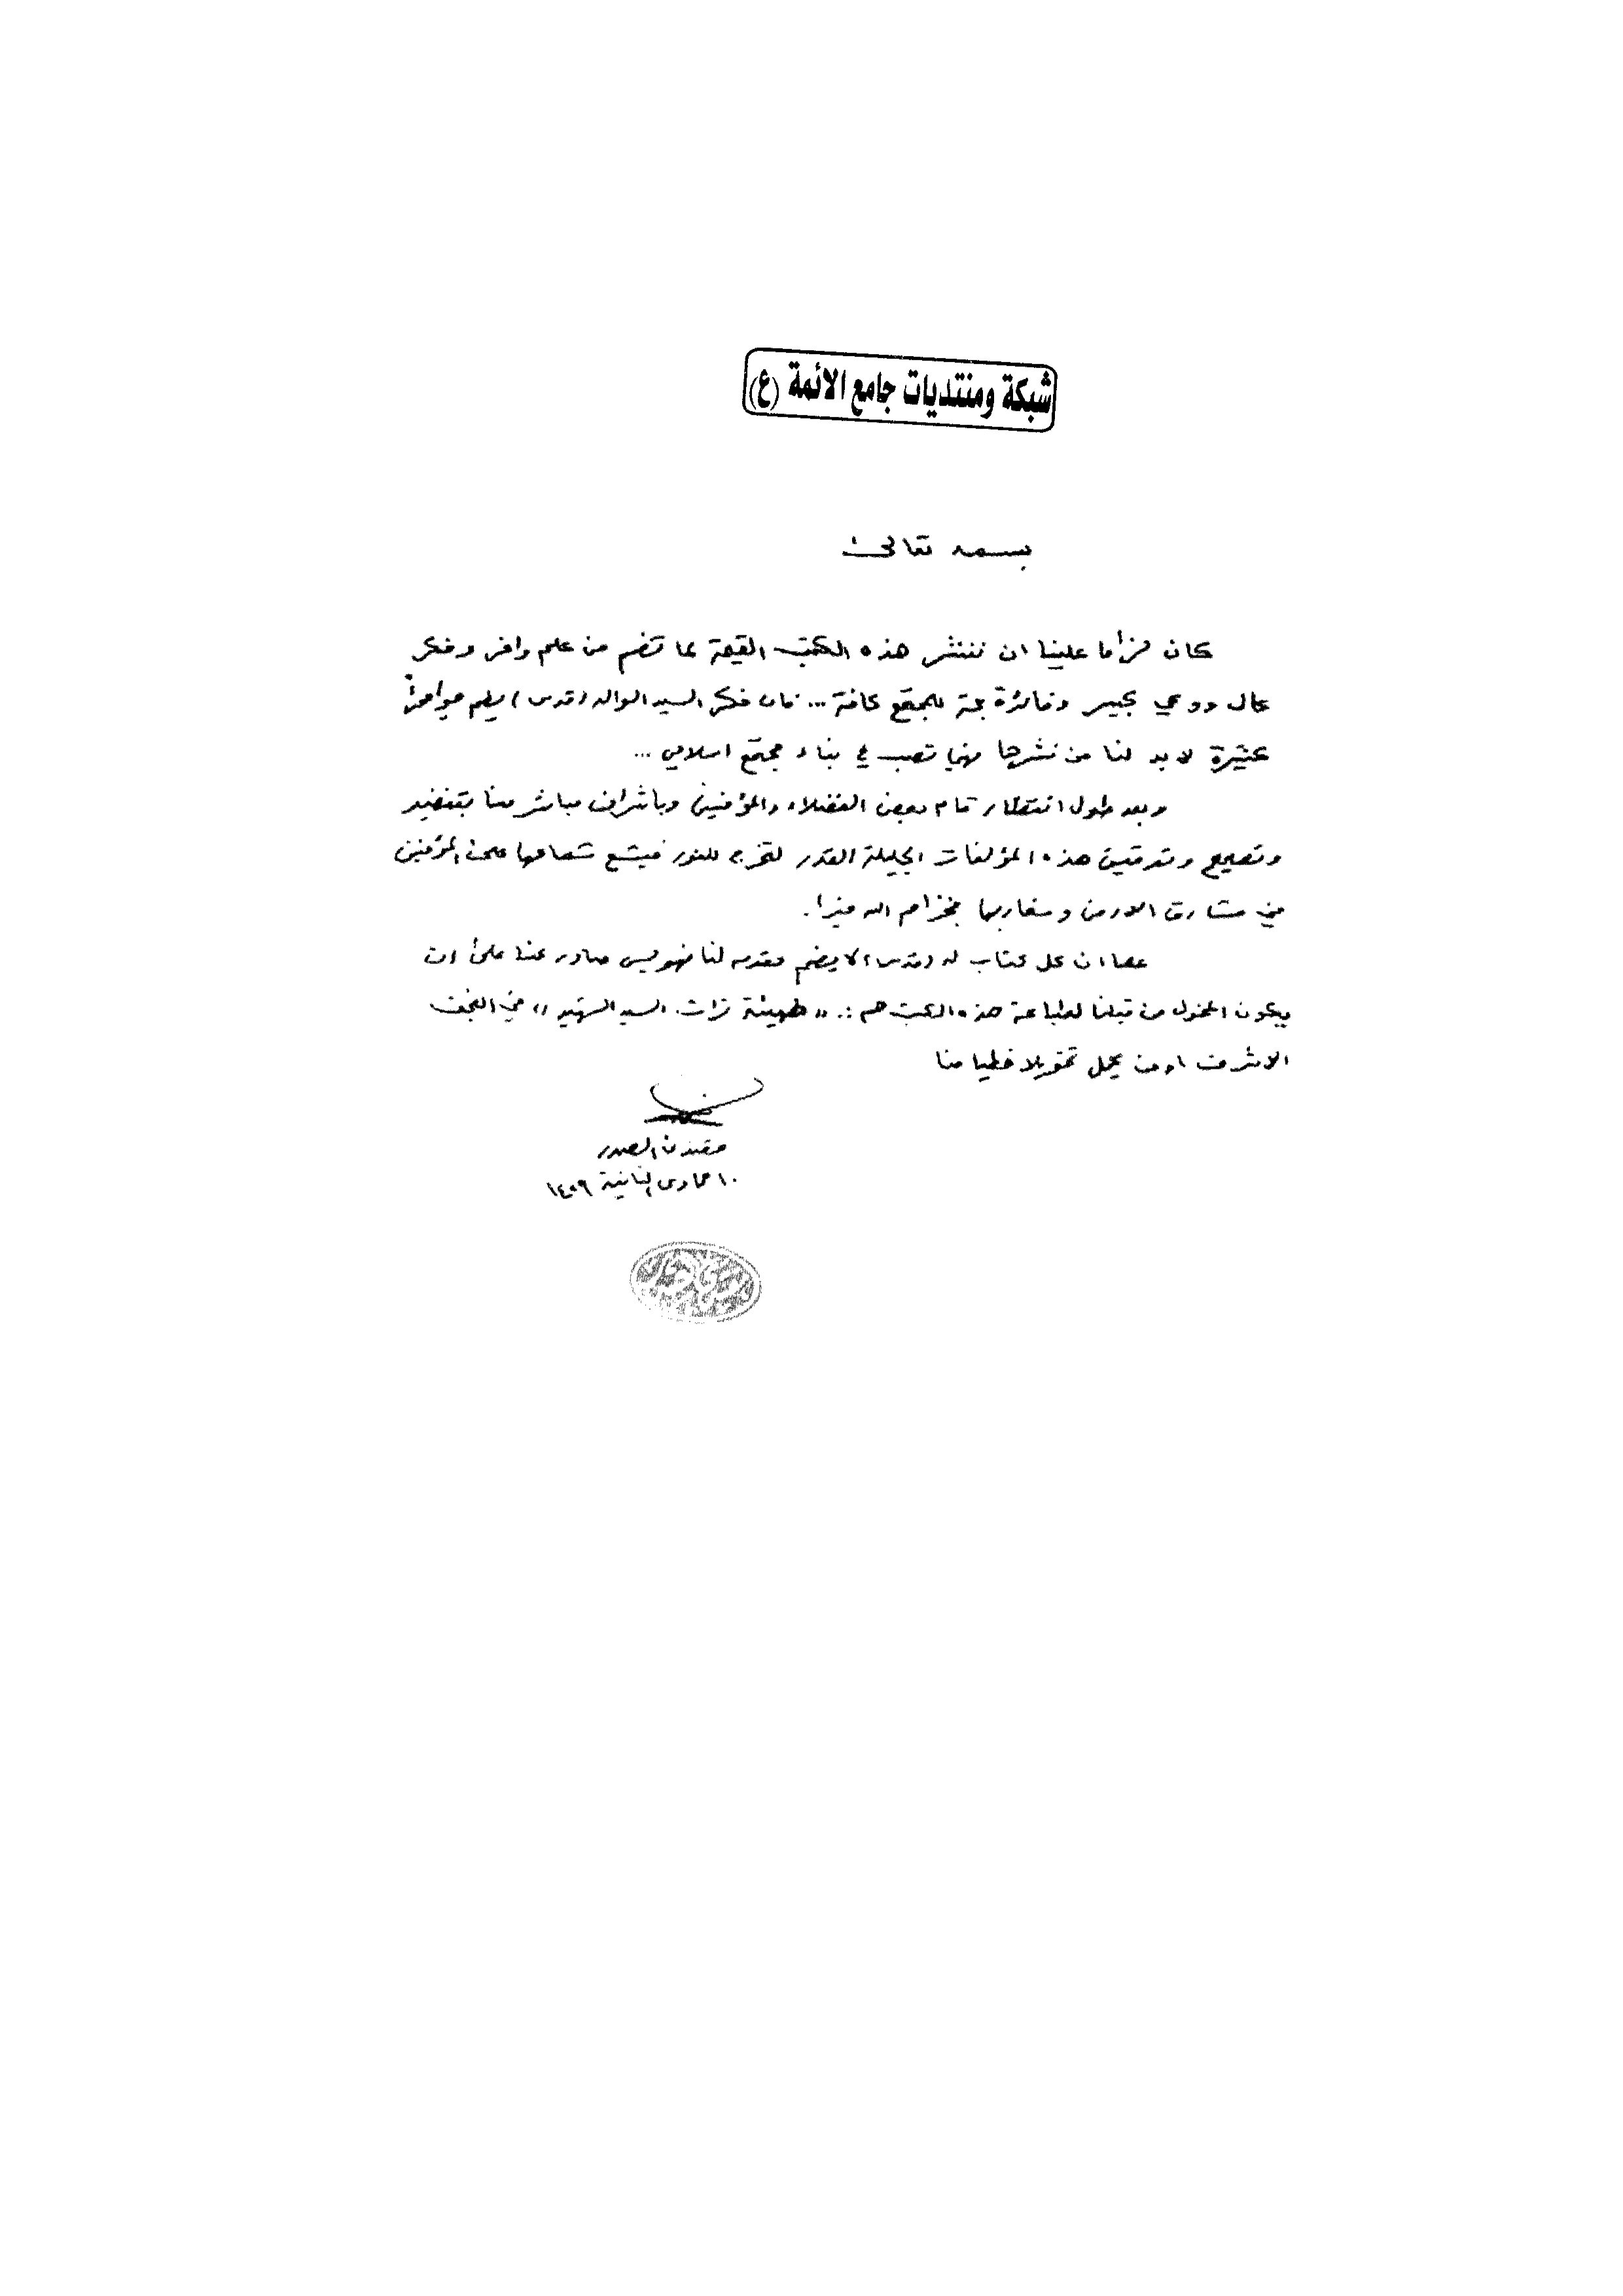 شبكة ومنتديات جامع الائمة (ع)
بسمه تعالى
كان لزاما علينا ان ننشر هذه الكتب القيمة لما تضم من علم وافر وفكر
عال ووعي كبير وفائدة جمة للمجتمع كافة ... فان فكر السيد الوالد (قدس) يضم جواهراً
كثيرة لا بد لنا من نشرها فهي تصب في بناء مجتمع اسلامي ...
وبعد طول انتظار قام بعض الفضلاء والمؤمنين وباشراف مباشر منا بتنضيد
وتصحيح وتدقيق هذه المؤلفات الجليلة القدر لتخرج للنور فيشع شعاعها على المؤمنين
في مشارق الارض ومغاربها فجزاهم الله خيرا .
علما ان كل كتاب له (قدس) لا يضم مقدمه لنا فهو ليس صادر عنا على ان
يكون المخول من قبلنا لطباعة هذه الكتب هم :. «هيئة تراث السيد الشهيد» في النجف
الاشرف او من يحمل تخويلا خطيا منا
مقتدى الصدر
١٠ جمادى الثانية ١٤٢٩